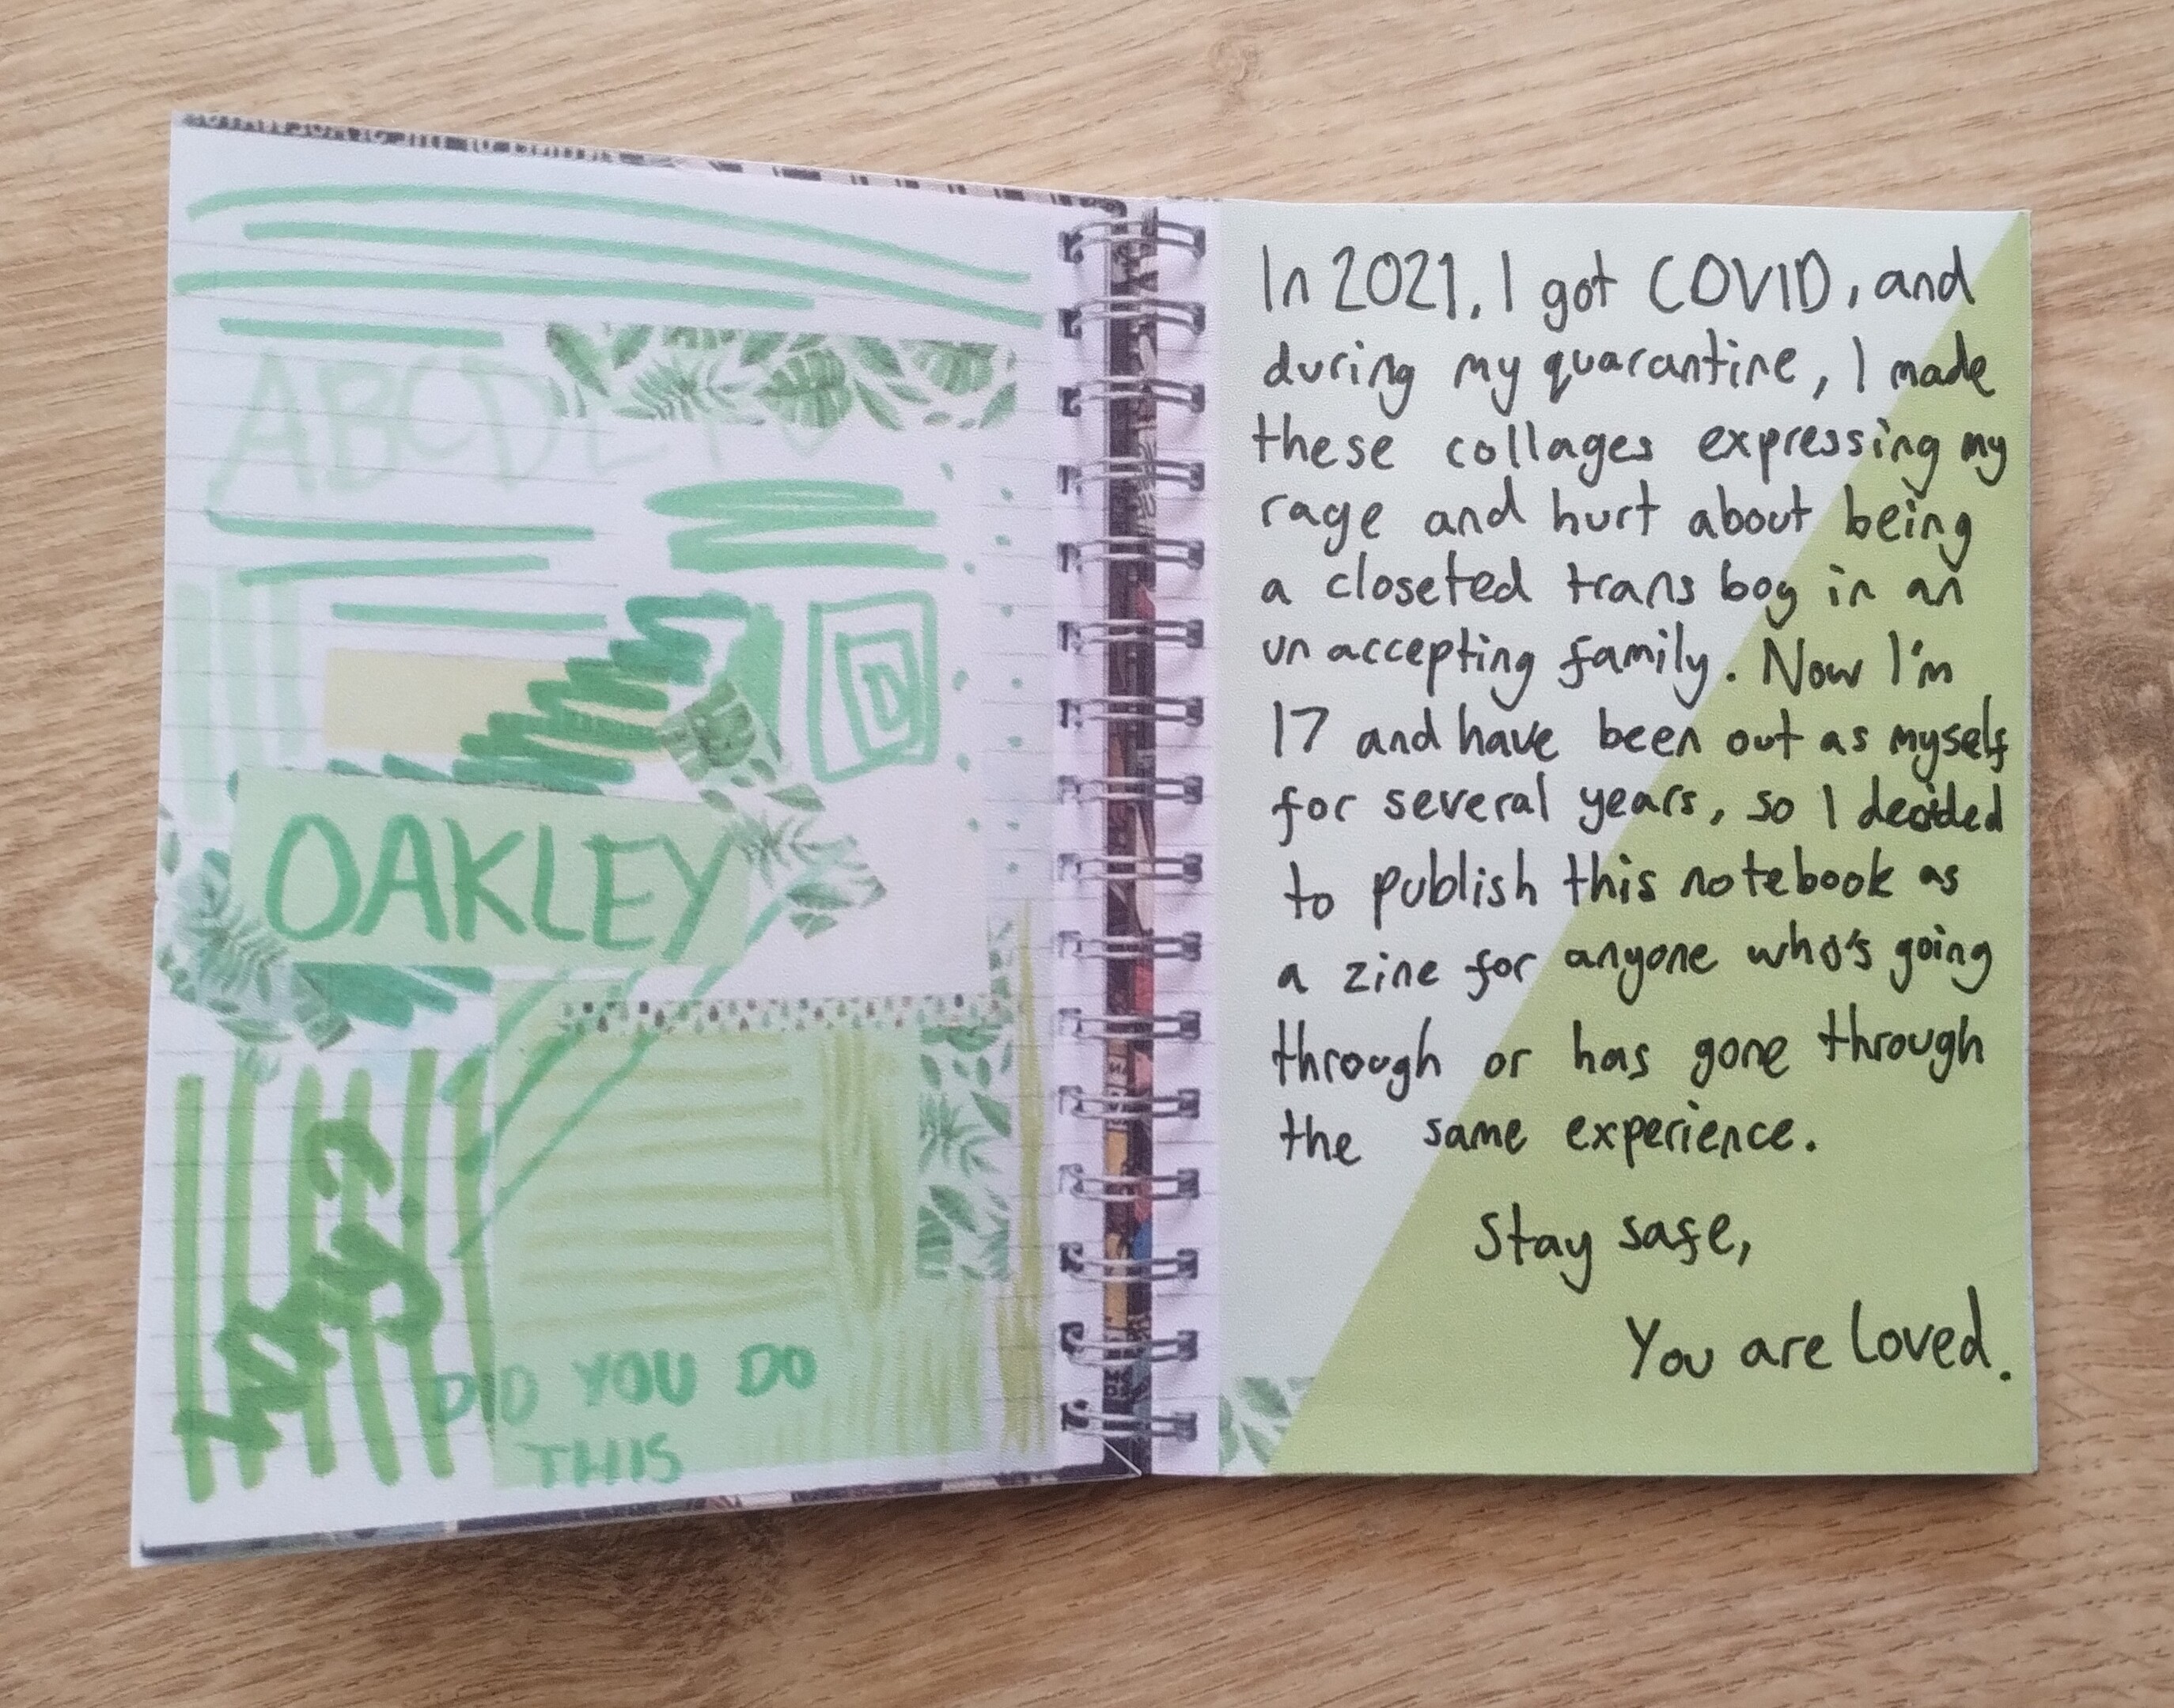 ABCDEFG
D
OAKLEY
Way?
DID YOU DO
THIS
In 2021, I got COVID, and
during my quarantine, I made
these collages expressing my
rage and hurt about being
a closeted trans boy in an
unaccepting family. Now I'm
17 and have been out as myself
for several years, so I decided
to publish this notebook as
a zine for anyone who's going
through or has gone through
the same experience.
Stay safe,
You are loved.